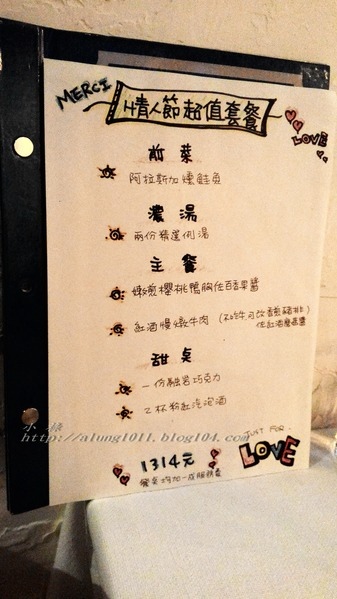 MERCI
情人節超值套餐
LOVE
前菜
阿拉斯加燻鮭魚
濃湯
兩份精選例湯
主餐
嫩煎櫻桃鴨胸佐百香果醬
紅酒慢燉牛肉 (不吃牛可改香煎豬排
佐紅酒蘑菇醬
甜桌
一份融岩巧克力
2杯粉紅汽泡酒
小綠
http://alung1011.blog104.com
JUST FOR
LOVE
1314元
餐桌均加一成服務費